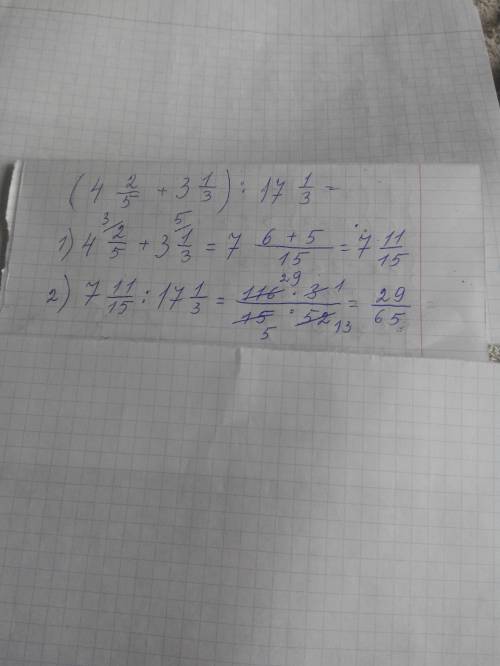 (4 2/5 + 3 1/3) : 17 1/3 =
1) 4 2/5 (3 + 3 1/3 (5 = 7 (6 + 5)/15 = 7 11/15
2) 7 11/15 : 17 1/3 = (116 29 · 3 1)/(15 5 · 52 13) = 29/65